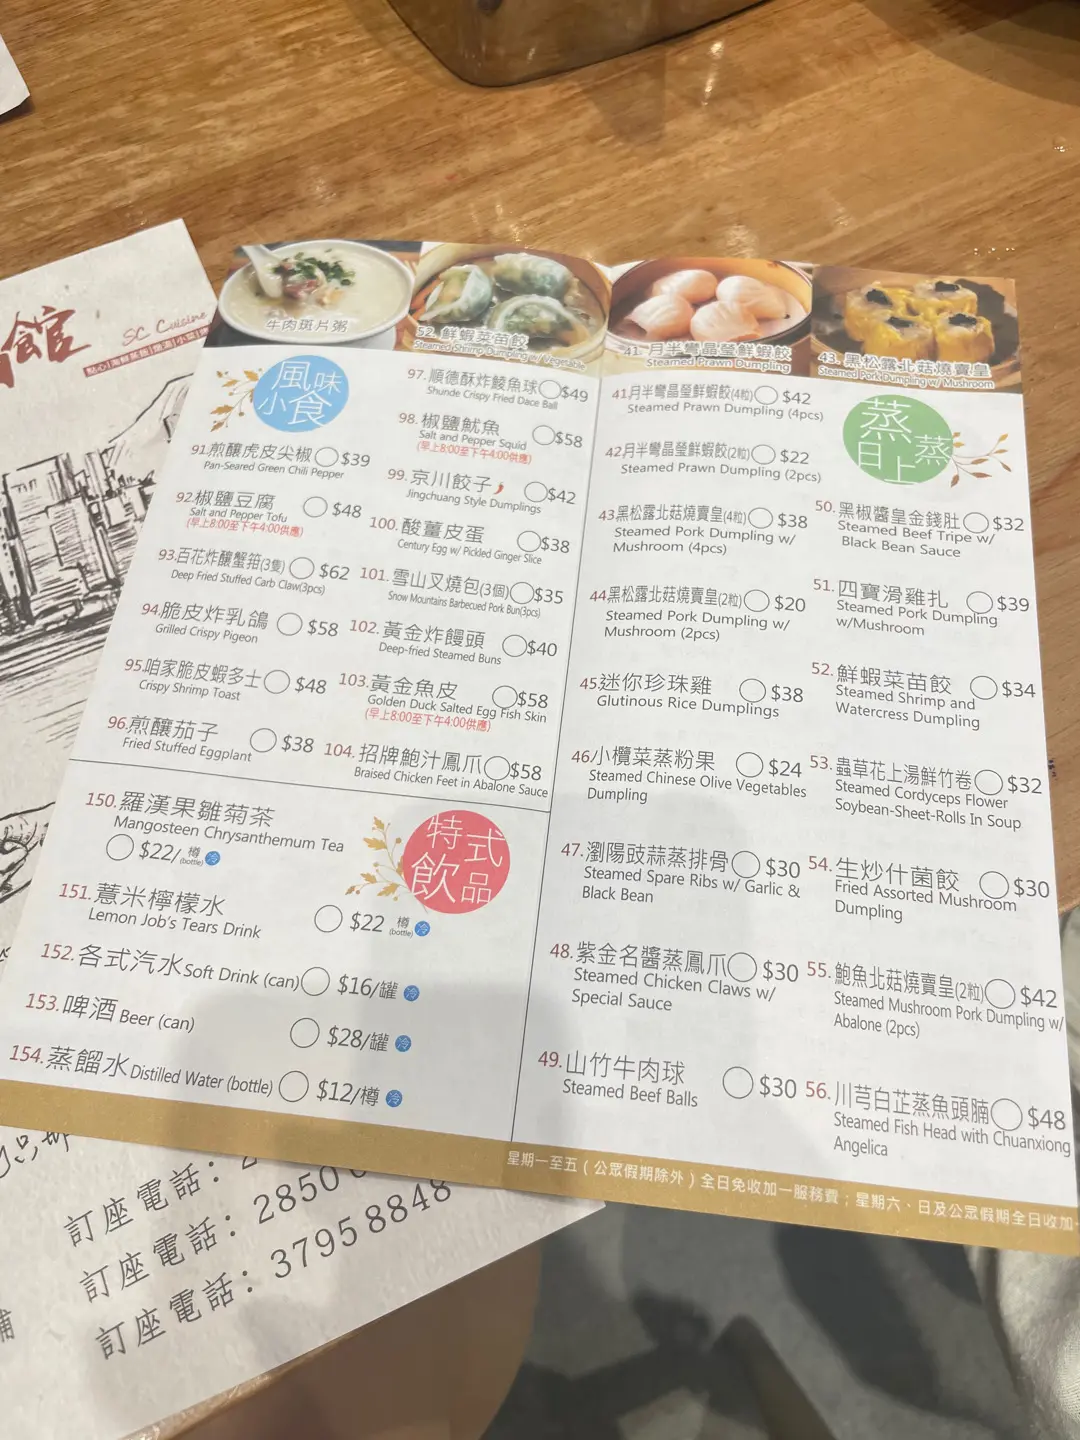 館
SC Cuisine
牛肉斑片粥
52. 鮮蝦菜苗餃
Steamed Shrimp Dumpling w/ Vegetable
41. 月半彎晶瑩鮮蝦餃
Steamed Prawn Dumpling
43. 黑松露北菇燒賣皇
Steamed Pork Dumpling w/ Mushroom
風味
小食
91.煎釀虎皮尖椒 $39
Pan-Seared Green Chili Pepper
92.椒鹽豆腐 $48
Salt and Pepper Tofu
(早上8:00至下午4:00供應)
93.百花炸釀蟹箝(3隻) $62
Deep Fried Stuffed Carb Claw(3pcs)
94.脆皮炸乳鴿 $58
Grilled Crispy Pigeon
95.咱家脆皮蝦多士 $48
Crispy Shrimp Toast
96.煎釀茄子 $38
Fried Stuffed Eggplant
97.順德酥炸鯪魚球 $49
Shunde Crispy Fried Dace Ball
98.椒鹽魷魚 $58
Salt and Pepper Squid
(早上8:00至下午4:00供應)
99.京川餃子 $42
Jingchuang Style Dumplings
100.酸薑皮蛋 $38
Century Egg w/ Pickled Ginger Slice
101.雪山叉燒包(3個) $35
Snow Mountains Barbecued Pork Bun(3pcs)
102.黃金炸饅頭 $40
Deep-fried Steamed Buns
103.黃金魚皮 $58
Golden Duck Salted Egg Fish Skin
(早上8:00至下午4:00供應)
104.招牌鮑汁鳳爪 $58
Braised Chicken Feet in Abalone Sauce
特式
飲品
150.羅漢果雛菊茶
Mangosteen Chrysanthemum Tea
$22/樽(bottle) 冷
151.薏米檸檬水
Lemon Job's Tears Drink
$22 樽(bottle) 冷
152.各式汽水Soft Drink (can) $16/罐 冷
153.啤酒 Beer (can) $28/罐 冷
154.蒸餾水Distilled Water (bottle) $12/樽 冷
蒸蒸
日上
41月半彎晶瑩鮮蝦餃(4粒) $42
Steamed Prawn Dumpling (4pcs)
42月半彎晶瑩鮮蝦餃(2粒) $22
Steamed Prawn Dumpling (2pcs)
43黑松露北菇燒賣皇(4粒) $38
Steamed Pork Dumpling w/
Mushroom (4pcs)
44黑松露北菇燒賣皇(2粒) $20
Steamed Pork Dumpling w/
Mushroom (2pcs)
45迷你珍珠雞 $38
Glutinous Rice Dumplings
46小欖菜蒸粉果 $24
Steamed Chinese Olive Vegetables
Dumpling
47.瀏陽豉蒜蒸排骨 $30
Steamed Spare Ribs w/ Garlic &
Black Bean
48.紫金名醬蒸鳳爪 $30
Steamed Chicken Claws w/
Special Sauce
49.山竹牛肉球 $30
Steamed Beef Balls
50.黑椒醬皇金錢肚 $32
Steamed Beef Tripe w/
Black Bean Sauce
51.四寶滑雞扎 $39
Steamed Pork Dumpling
w/Mushroom
52.鮮蝦菜苗餃 $34
Steamed Shrimp and
Watercress Dumpling
53.蟲草花上湯鮮竹卷 $32
Steamed Cordyceps Flower
Soybean-Sheet-Rolls In Soup
54.生炒什菌餃 $30
Fried Assorted Mushroom
Dumpling
55.鮑魚北菇燒賣皇(2粒) $42
Steamed Mushroom Pork Dumpling w/
Abalone (2pcs)
56.川芎白芷蒸魚頭腩 $48
Steamed Fish Head with Chuanxiong
Angelica
星期一至五（公眾假期除外）全日免收加一服務費；星期六、日及公眾假期全日收加
訂座電話：2
訂座電話：2850
訂座電話：3795 8848